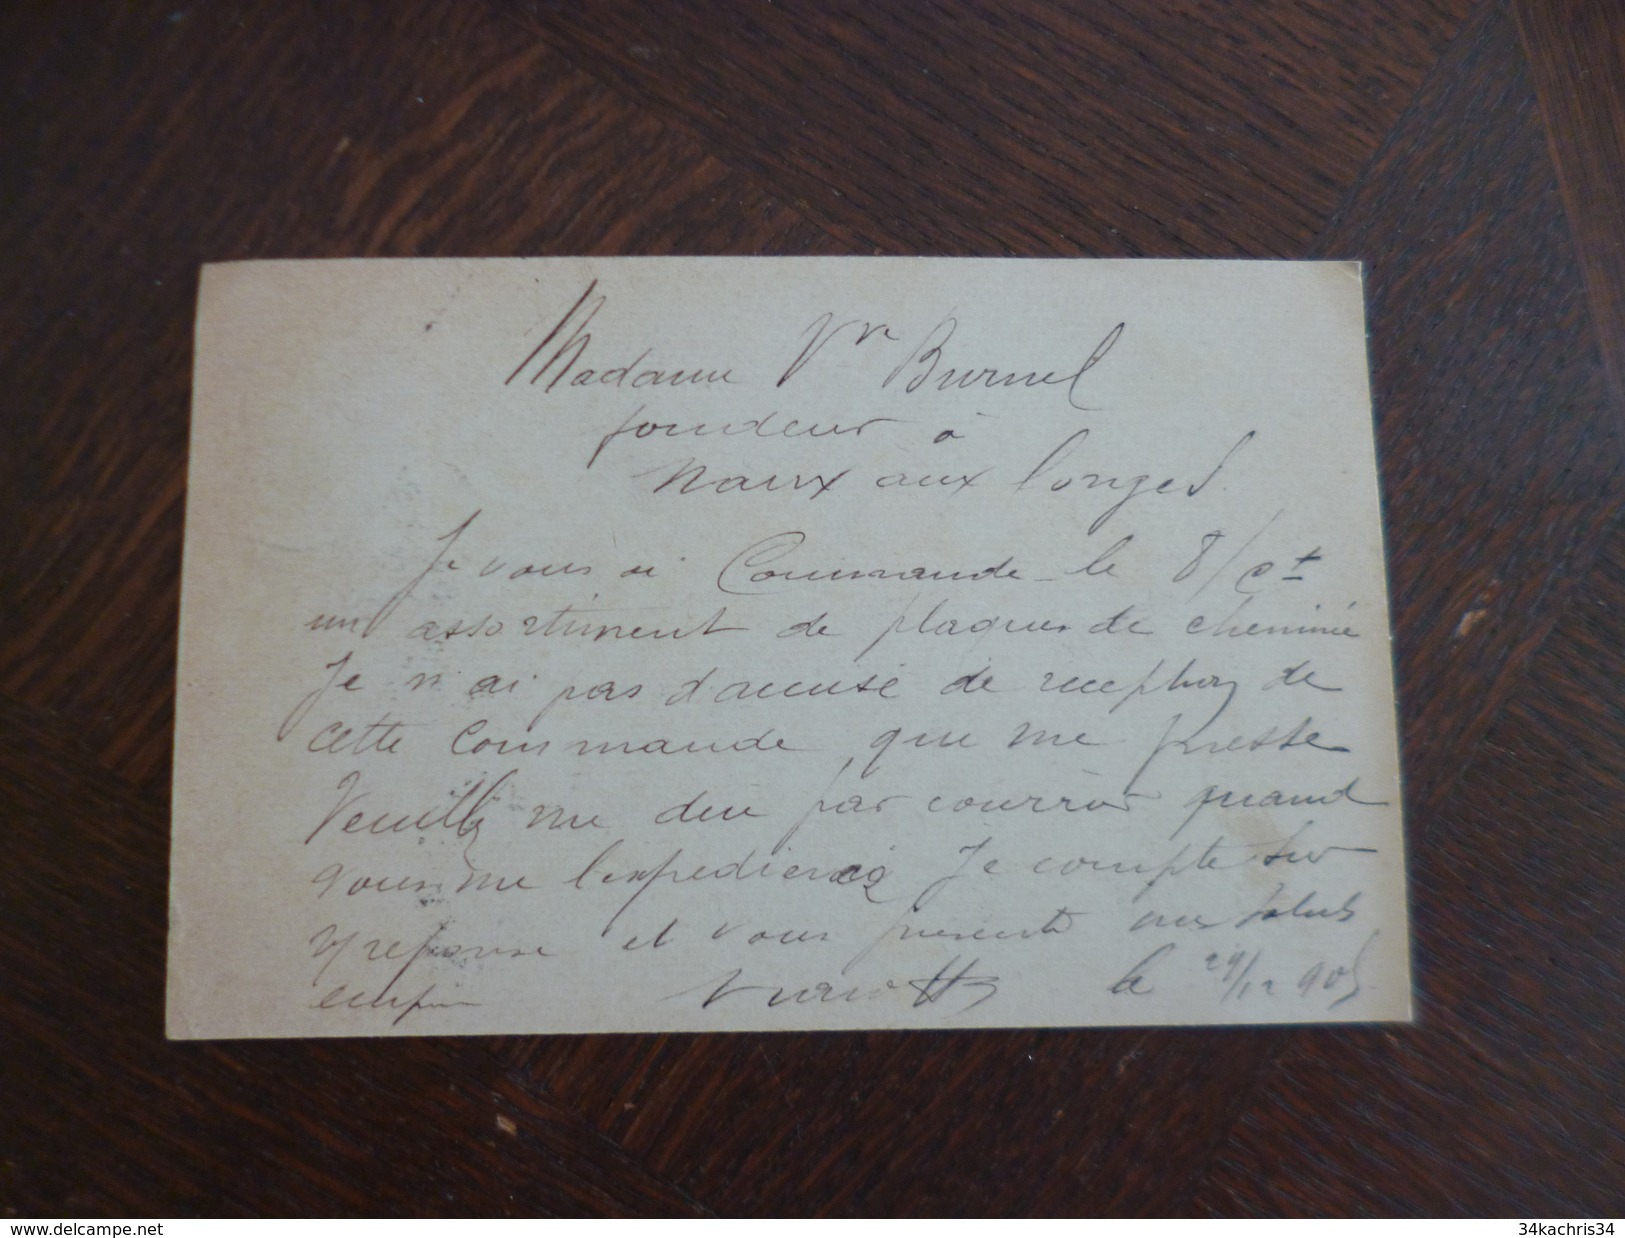 Madame Vve Burnel
fondeur à
Naux aux longes
Je vous ai Commande le 8/Ct
un assortiment de plaques de cheminé
Je n ai pas d'accusé de reception de
cette Commande que me presse
Veuillez me dire par courrier quand
vous me l'expedierez Je compte sur
V/ reponse et vous presente mes saluts
le 29/12 905
www.delcampe.net
34kachris34